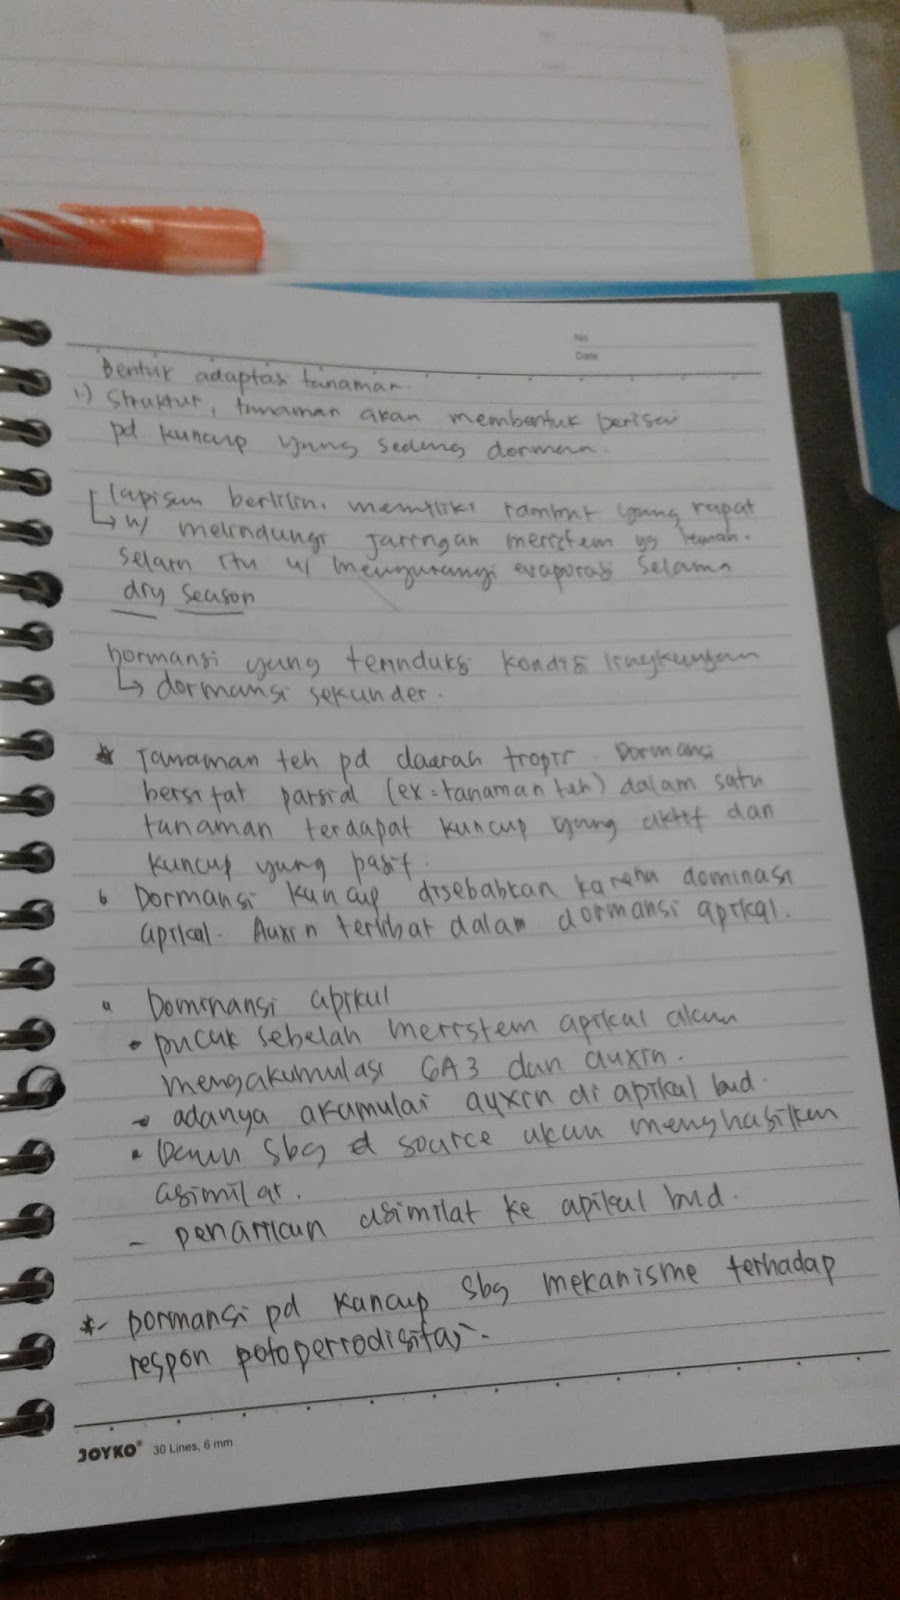 No
Date
Bentuk adaptasi tanaman.
1.) Struktur, tanaman akan membentuk perisai
pd kuncup yang sedang dorman.
lapisan berlilin. memiliki rambut yang rapat
↳ u/ melindungi jaringan meristem yg lemah.
selain itu u/ mengurangi evaporasi selama
dry season
Dormansi yang terinduksi kondisi lingkungan
↳ dormansi sekunder.
* Tanaman teh pd daerah tropis. Dormansi
bersifat parsial (ex: tanaman teh) dalam satu
tanaman terdapat kuncup yang aktif dan
kuncup yang pasif.
Dormansi kuncup disebabkan karena dominasi
apikal. Auxin terlibat dalam dormansi apikal.
Dominansi apikal
• pucuk sebelah meristem apikal akan
mengakumulasi GA3 dan auxin.
→ adanya akamulai auxin di apikal bud.
• Daun sbg source akan menghasilkan
asimilat.
- penarikan asimilat ke apikal bud.
* Dormansi pd kuncup sbg mekanisme terhadap
respon potoperiodisitas.
JOYKO® 30 Lines, 6 mm